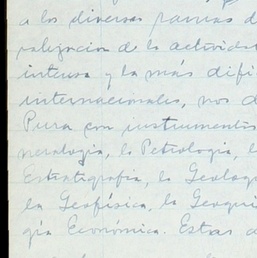 a los diversos ramas d
ralización de la actividad
intensa y la más difi
internacionales, nos d
Pura con instrumentos
neralogía, la Petrología, l
Estratigrafía, la Geolog
la Geofísica, la Geoquí
gía Económica. Estas a